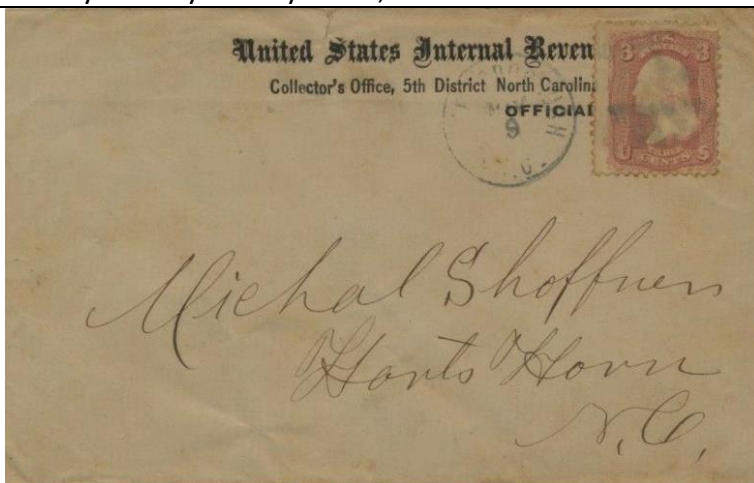 United States Internal Reven
Collector's Office, 5th District North Carolina
OFFICIAL
3 U.S. 3
9
N.C.
U THREE CENTS S
Michal Shoffner
Harts Horn
N.C.